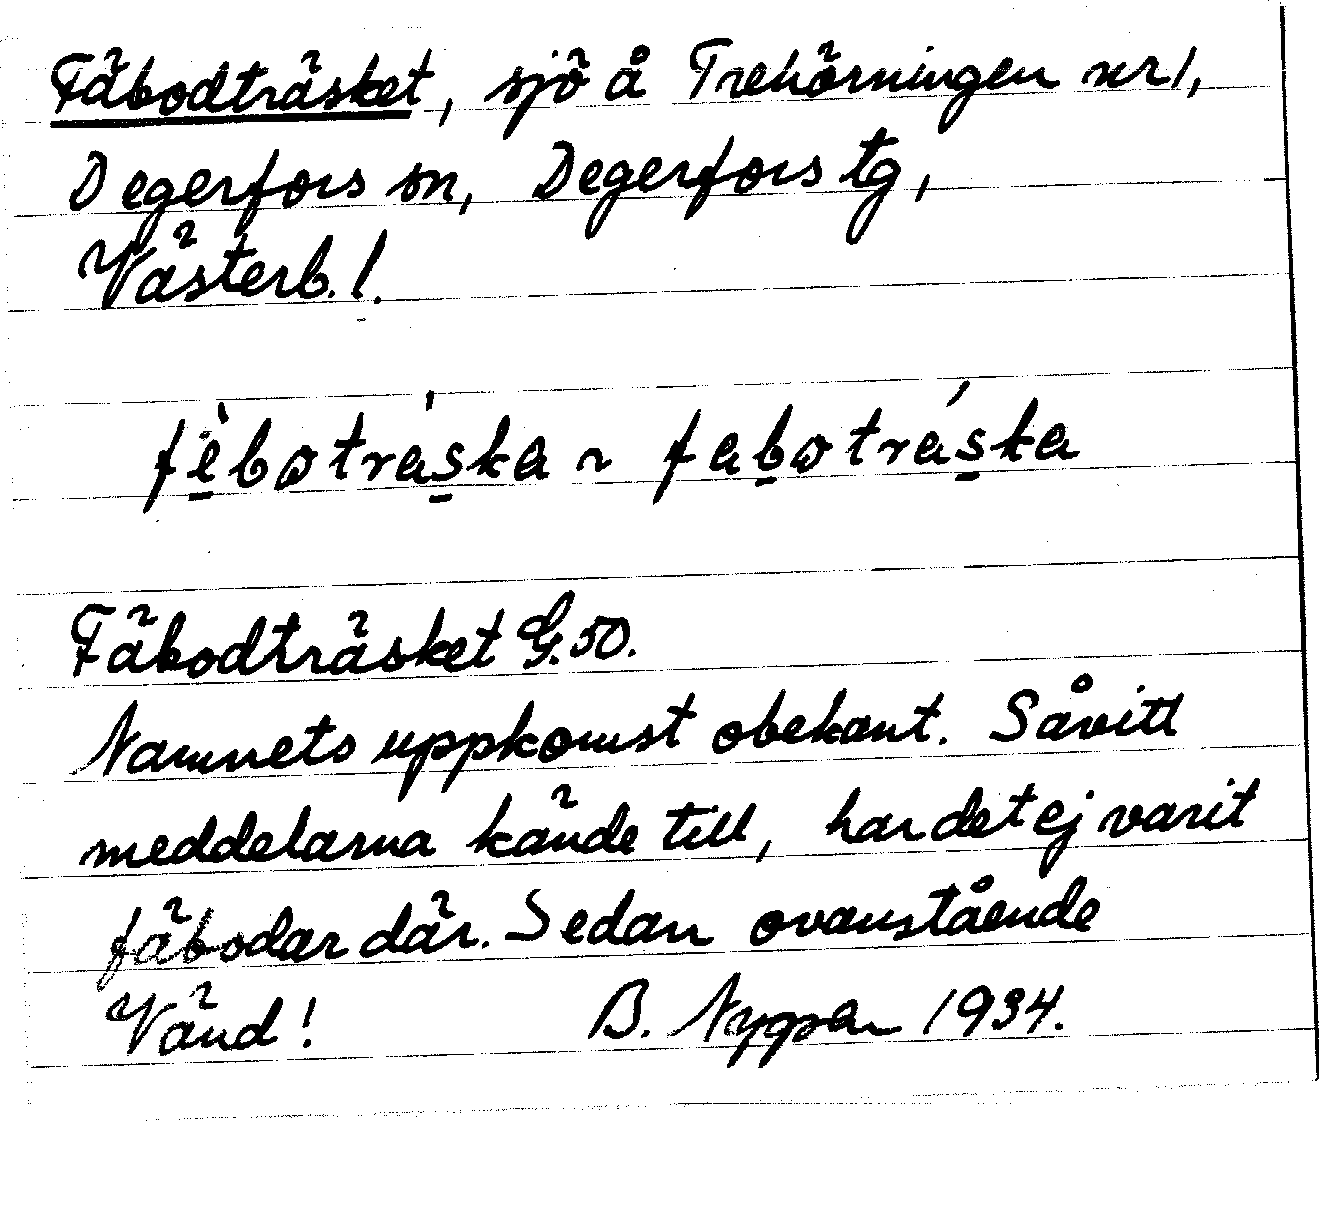 Fäbodträsket, sjö å Trehörningen nr 1,
Degerfors sn, Degerfors tg,
Västerb. l.
fèbotráska ~ fabotráska
Fäbodträsket G. 50.
Namnets uppkomst obekant. Såvitt
meddelarna kände till, har det ej varit
fäbodar där. Sedan ovanstående
Vänd! B. Nygren 1934.